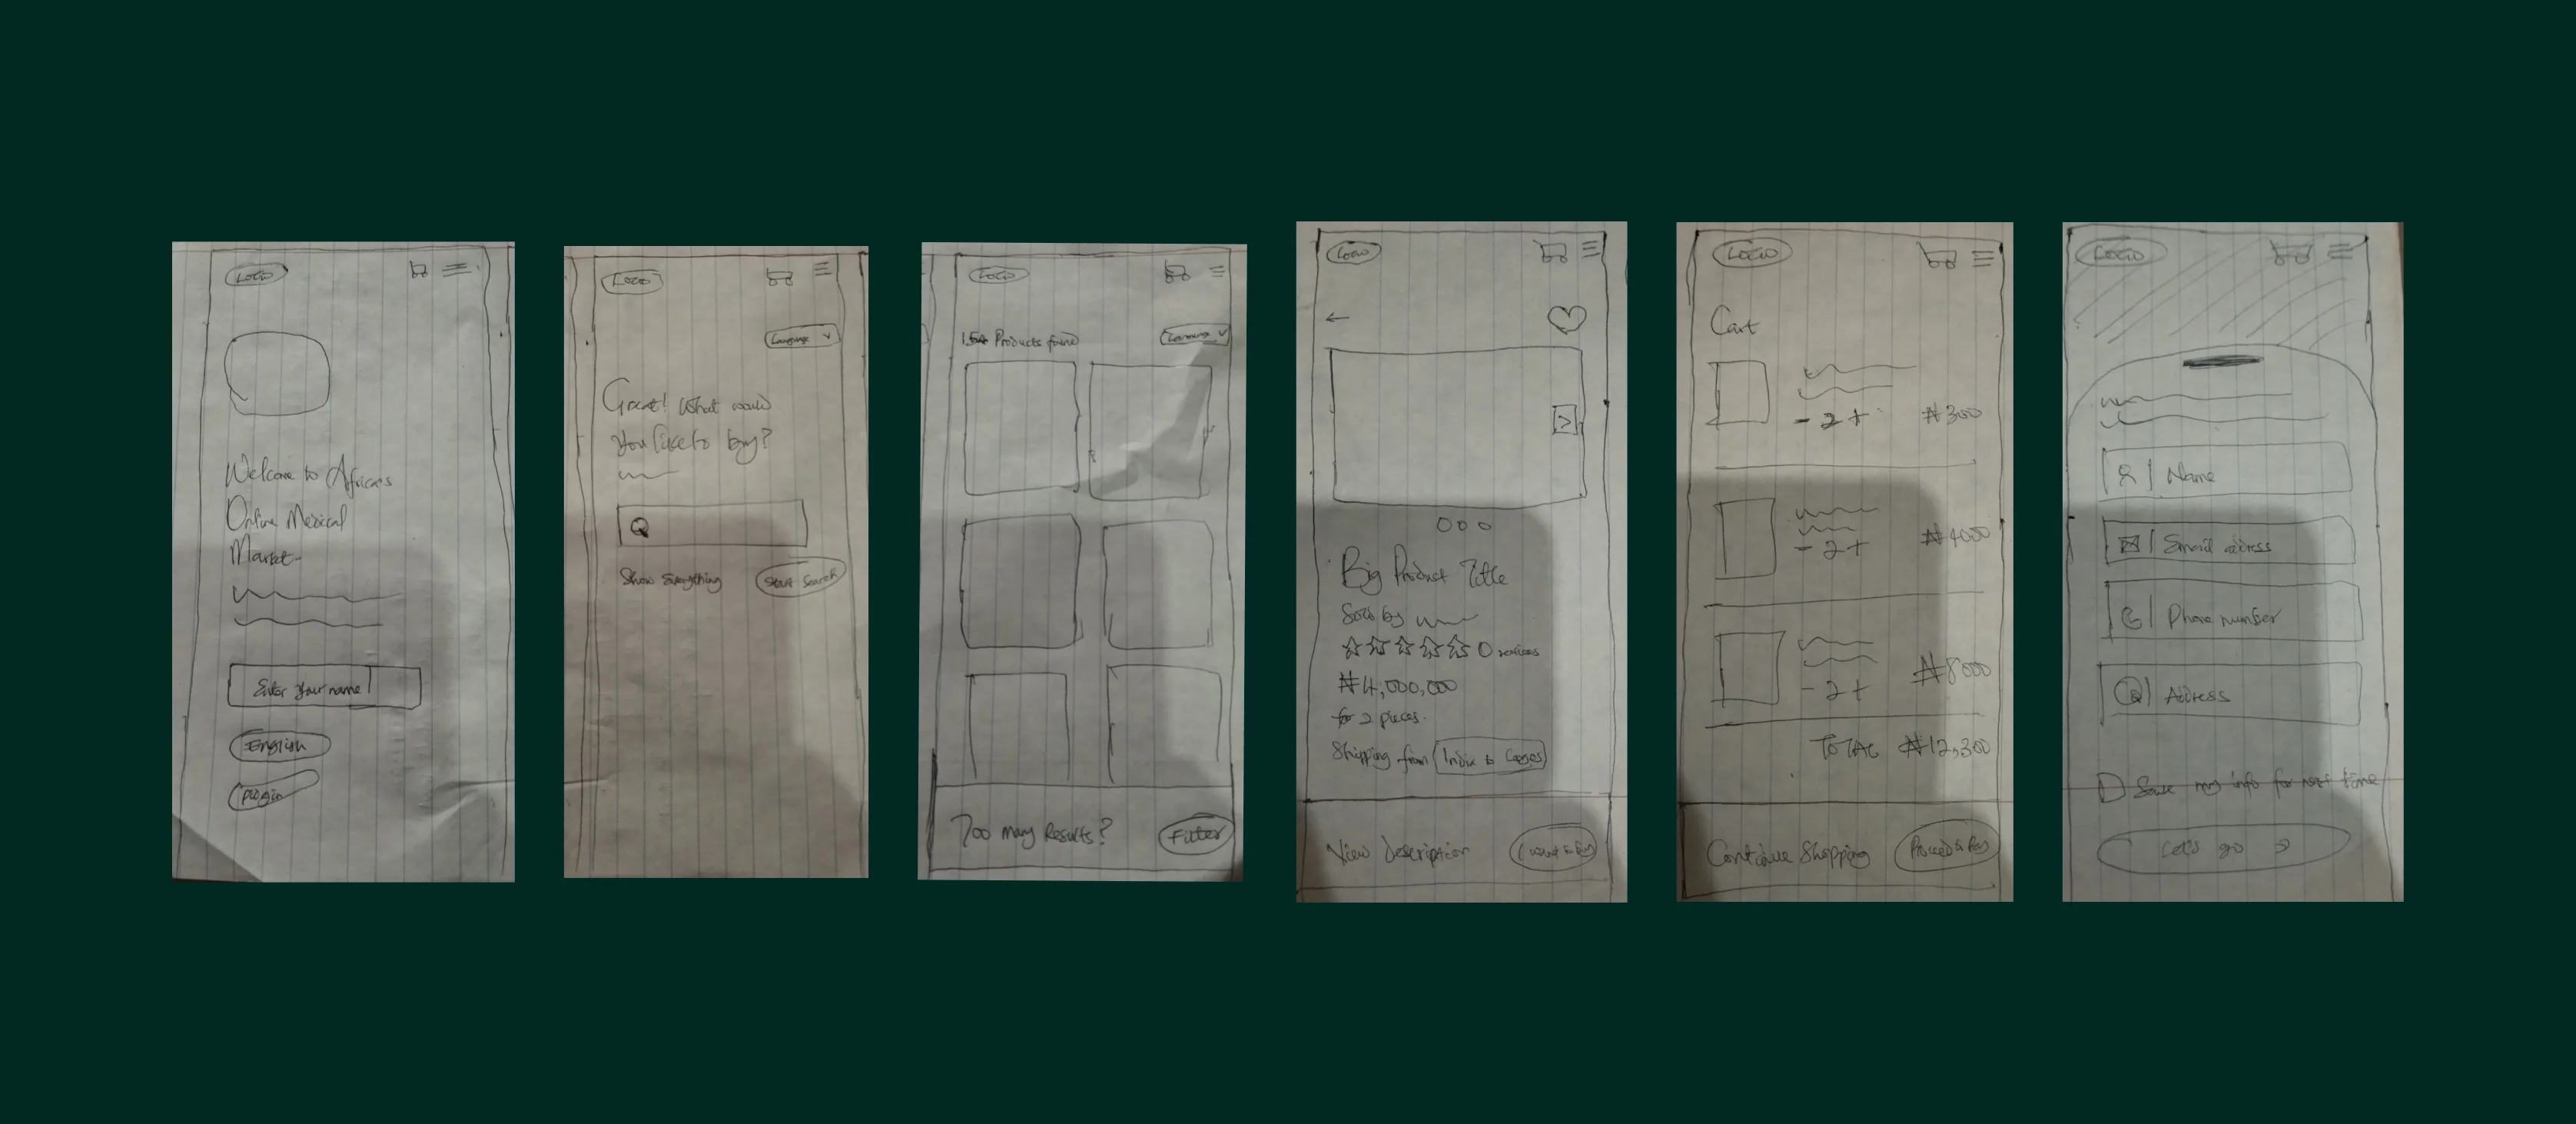 LOGO
Welcome to Africa's
Online Medical
Market
Enter your name
English
Pidgin
LOGO
Language
Great! What would
you like to buy?
Show Everything
Start Search
LOGO
Products found
Language
Too Many Results?
Filter
LOGO
Big Product Title
Sold by
0 reviews
₦4,000,000
for 2 pieces.
Shipping from India to Lagos
View Description
I want to buy
LOGO
Cart
- 2 +
₦300
- 2 +
₦4000
- 2 +
₦8000
TOTAL ₦12,300
Continue Shopping
Proceed to Pay
LOGO
Name
Email address
Phone number
Address
Save my info for next time
Let's go